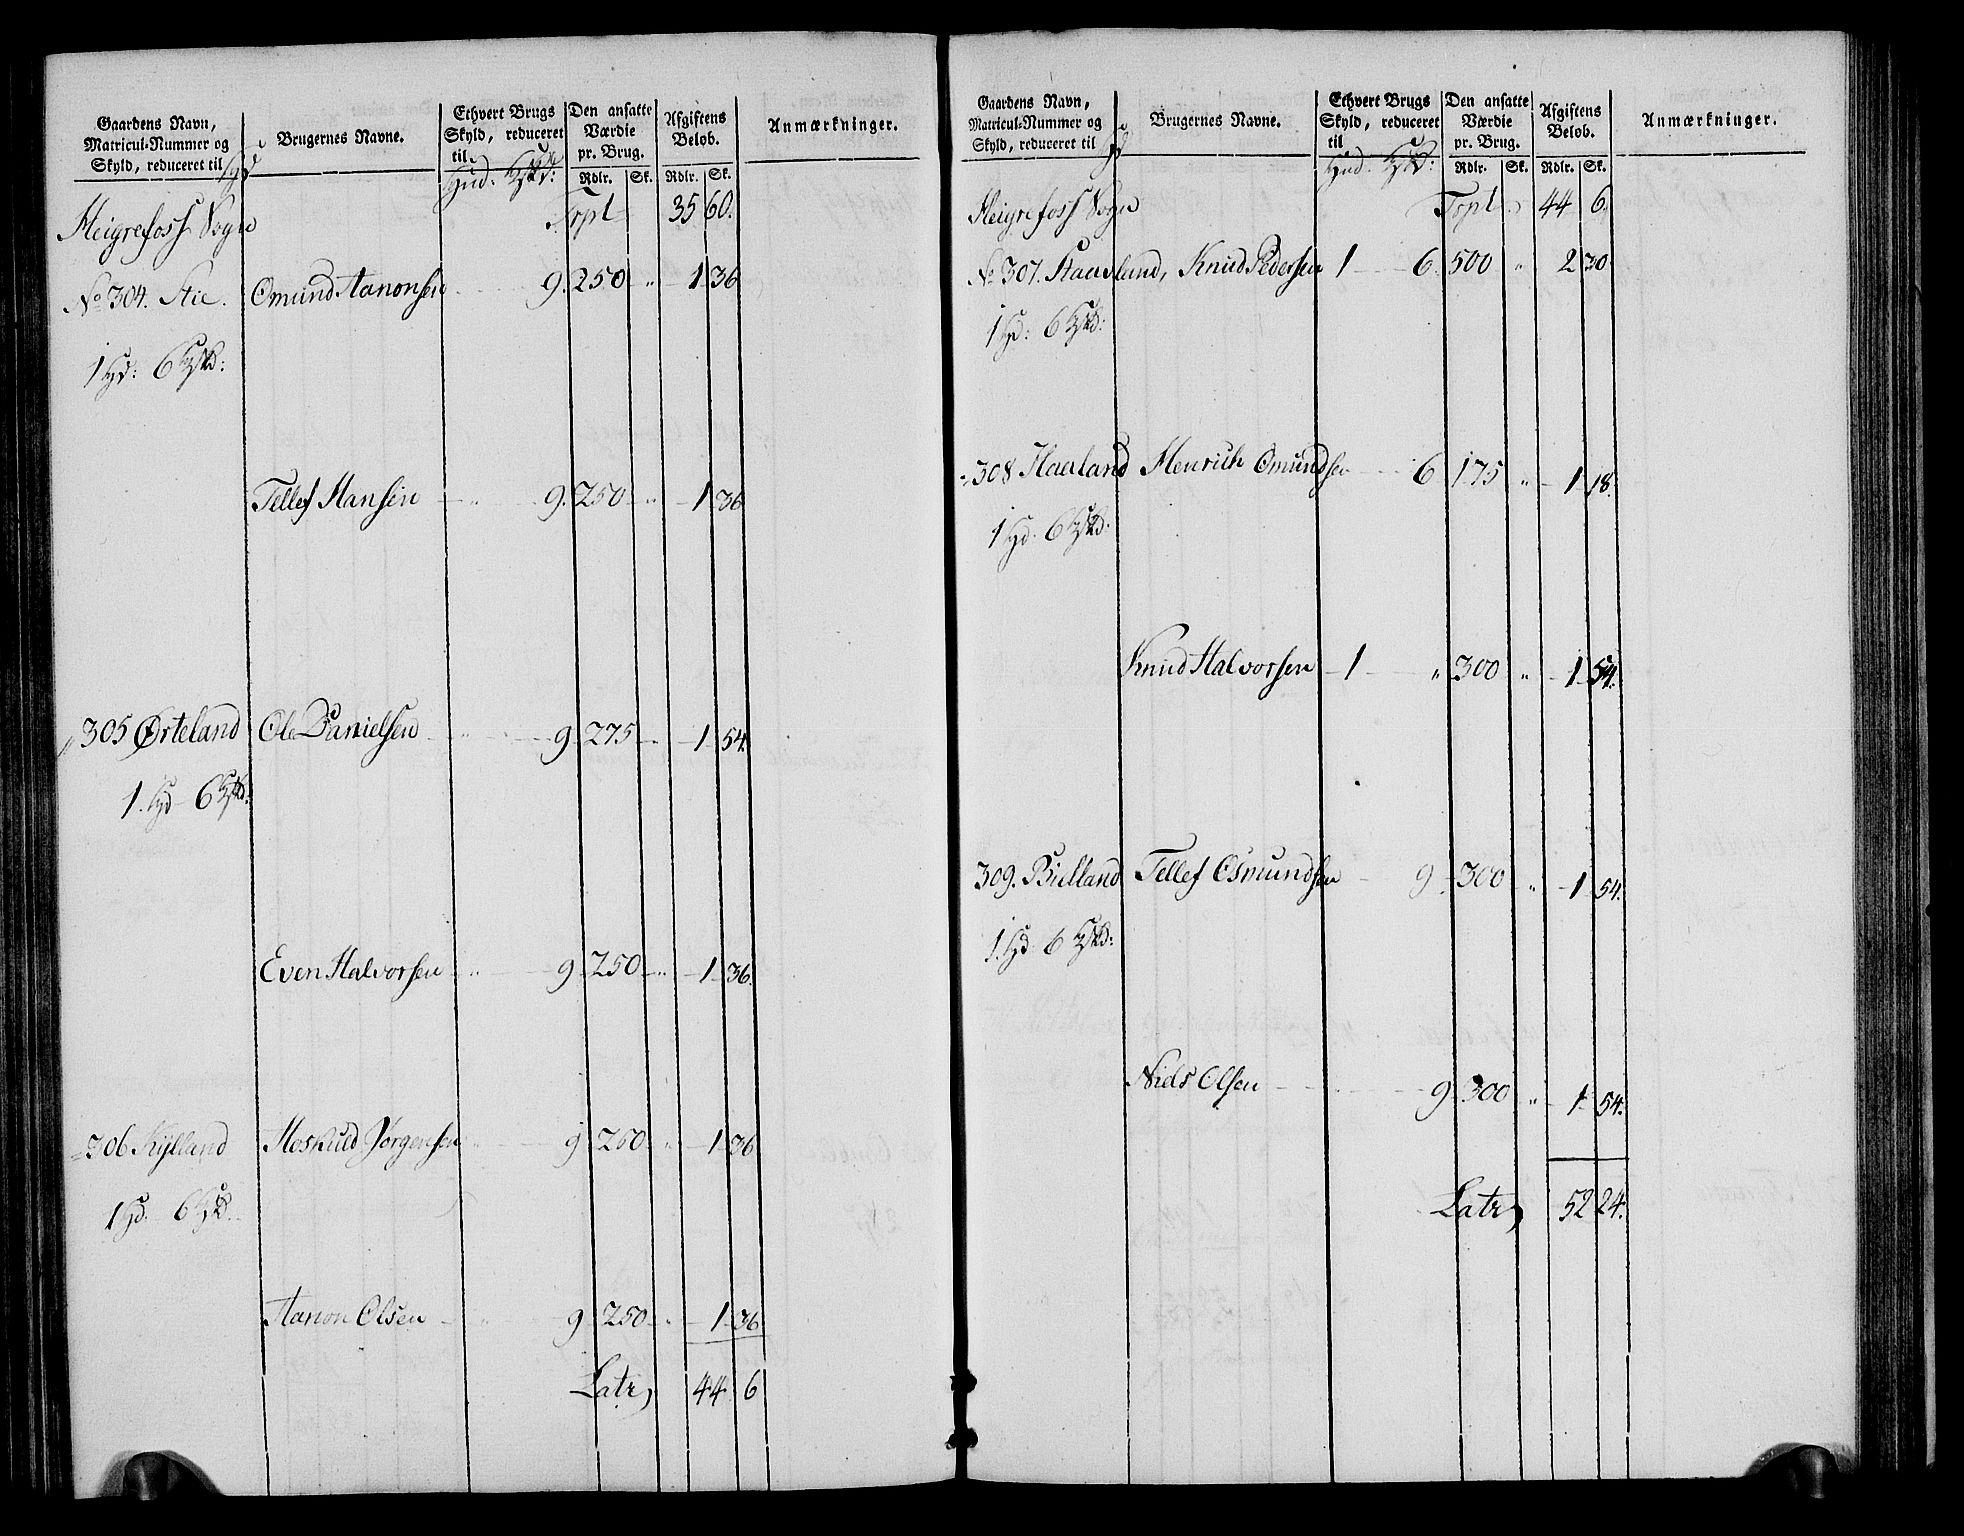 Gaardens Navn,
Matricul-Nummer og
Skyld, reduceret til
Brugernes Navne.
Ethvert Brugs
Skyld, reduceret
til
Hud.
Den ansatte
Værdie
pr. Brug.
Rdlr. Sk.
Afgiftens
Beløb.
Rdlr. Sk.
Anmærkninger.
Heigrefoss Sogn Trpt 35 60.
No 304. Stie. Omund Aanonsen 9. 250 " 1 36
1 Hd: 6
Tellef Hansen " 9. 250 " 1 36
" 305 Ørteland Ole Danielsen " 9 275 " 1 54.
1. Hd 6
Even Halvorsen " 9 250 " 1 36.
= 306 Kylland Hoskuld Jørgensen " 9 250 " 1 36
1 Hd. 6
Aanon Olsen " 9 250 " 1 36.
Latr, 44 6
Gaardens Navn,
Matricul-Nummer og
Skyld, reduceret til
Brugernes Navne.
Ethvert Brugs
Skyld, reduceret
til
Hud.
Den ansatte
Værdie
pr. Brug.
Rdlr. Sk.
Afgiftens
Beløb.
Rdlr. Sk.
Anmærkninger.
Heigrefoss Sogn Trpt 44 6.
No 307. Knud Pedersen 1 6. 500 " 2 30.
1 Hd: 6
= 308 Haaland Henrich Omundsen 6 175 " 1 18.
1 Hd. 6
Knud Halvorsen 1 " 300 " 1 54.
309. Tellef Osmundsen 9 300 " 1 54.
1. Hd 6
Niels Olsen 9 300 " 1 54.
Latr, 52 24.